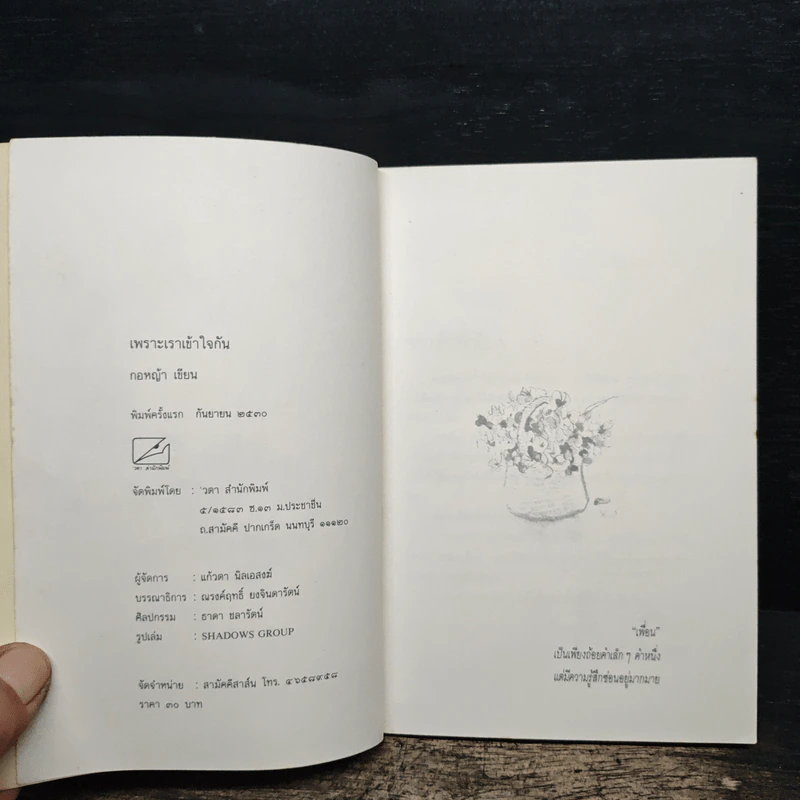 เพราะเราเข้าใจกัน
กอหญ้า เขียน
พิมพ์ครั้งแรก กันยายน ๒๕๓๐
วตา สำนักพิมพ์
จัดพิมพ์โดย : วตา สำนักพิมพ์
๕/๑๕๘๓ ซ.๑๓ ม.ประชาชื่น
ถ.สามัคคี ปากเกร็ด นนทบุรี ๑๑๑๒๐
ผู้จัดการ : แก้วตา นิลเอสงฆ์
บรรณาธิการ : ณรงค์ฤทธิ์ ยงจินดารัตน์
ศิลปกรรม : ธาดา ชลารัตน์
รูปเล่ม : SHADOWS GROUP
จัดจำหน่าย : สามัคคีสาส์น โทร. ๔๖๕๘๙๕๘
ราคา ๓๐ บาท
"เพื่อน"
เป็นเพียงถ้อยคำเล็ก ๆ คำหนึ่ง
แต่มีความรู้สึกซ่อนอยู่มากมาย